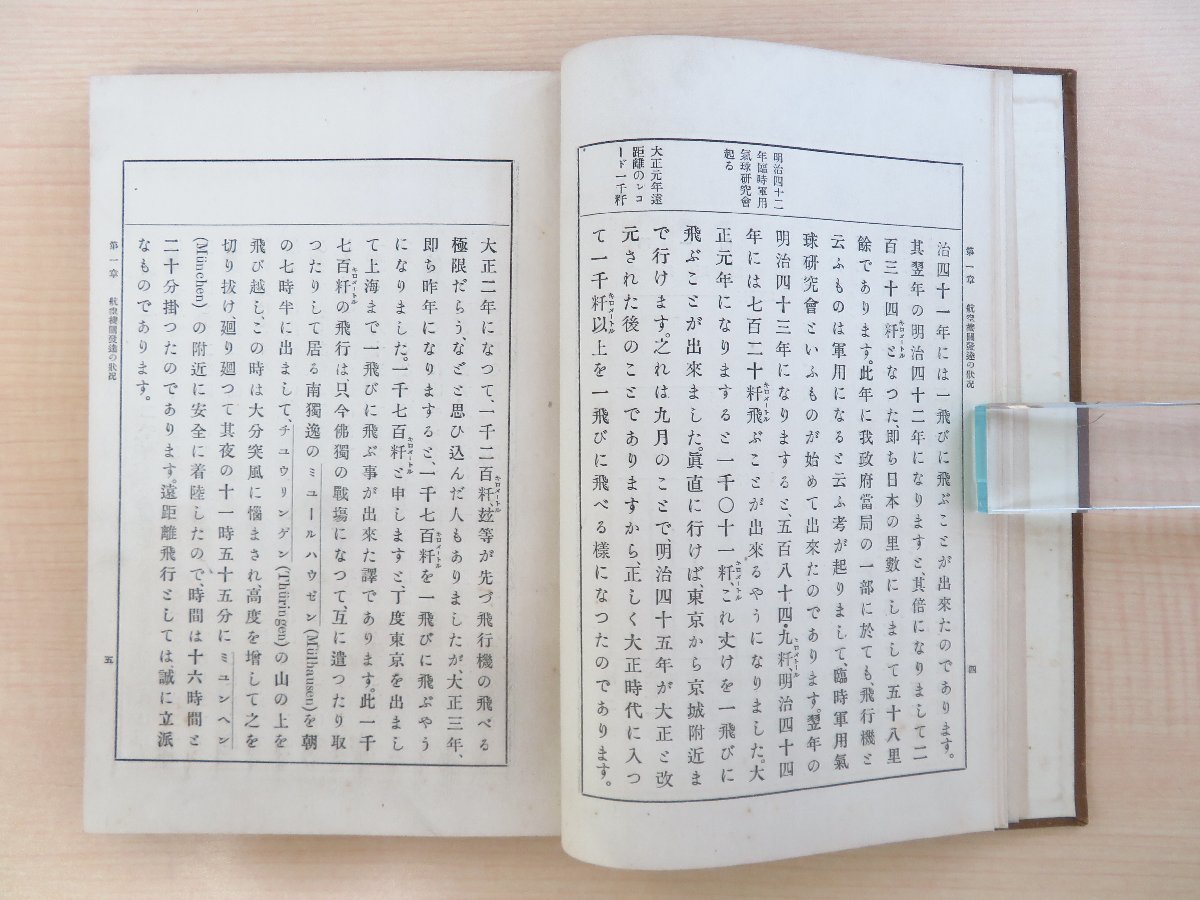 第一章 航空機關發達の狀況
四
明治四十二
年臨時軍用
氣球研究會
起る
大正元年遠
距離のレコ
ード一千粁
治四十一年には一飛びに飛ぶことが出來たのであります。
其翌年の明治四十二年になりますと其倍になりまして二
百三十四粁キロメートルとなつた、即ち日本の里數にしまして五十八里
餘であります。此年に我政府當局の一部に於ても、飛行機と
云ふものは軍用になると云ふ考が起りまして、臨時軍用氣
球研究會といふものが始めて出來たのであります。翌年の
明治四十三年になりますると、五百八十四・九粁キロメートル、明治四十四
年には七百二十粁キロメートル飛ぶことが出來るやうになりました。大
正元年になりますると一千〇十一粁キロメートル、これ丈けを一飛びに
飛ぶことが出來ました。眞直に行けば、東京から京城附近ま
で行けます。之れは九月のことで、明治四十五年が大正と改
元された後のことでありますから、正しく大正時代に入つ
て一千粁キロメートル以上を一飛びに飛べる樣になつたのであります。
大正二年になつて、一千二百粁キロメートル、玆等が先づ飛行機の飛べる
極限だらう、などと思ひ込んだ人もありましたが、大正三年、
即ち昨年になりますると、一千七百粁キロメートルを一飛びに飛ぶやう
になりました。一千七百粁キロメートルと申しますと丁度東京を出まし
て上海まで一飛びに飛ぶ事が出來た譯であります。此一千
七百粁キロメートルの飛行は、只今佛獨の戰場になつて、互に遣つたり取
つたりして居る南獨逸のミュールハウゼン(Mülhausen)を朝
の七時半に出まして、チュウリンゲン(Thüringen)の山の上を
飛び越し、この時は大分突風に惱まされ、高度を增して之を
切り拔け、廻り廻つて其夜の十一時五十五分にミュンヘン
(München)の附近に安全に着陸したので、時間は十六時間と
二十分掛つたのであります。遠距離飛行としては、誠に立派
なものであります。
第一章 航空機關發達の狀況
五